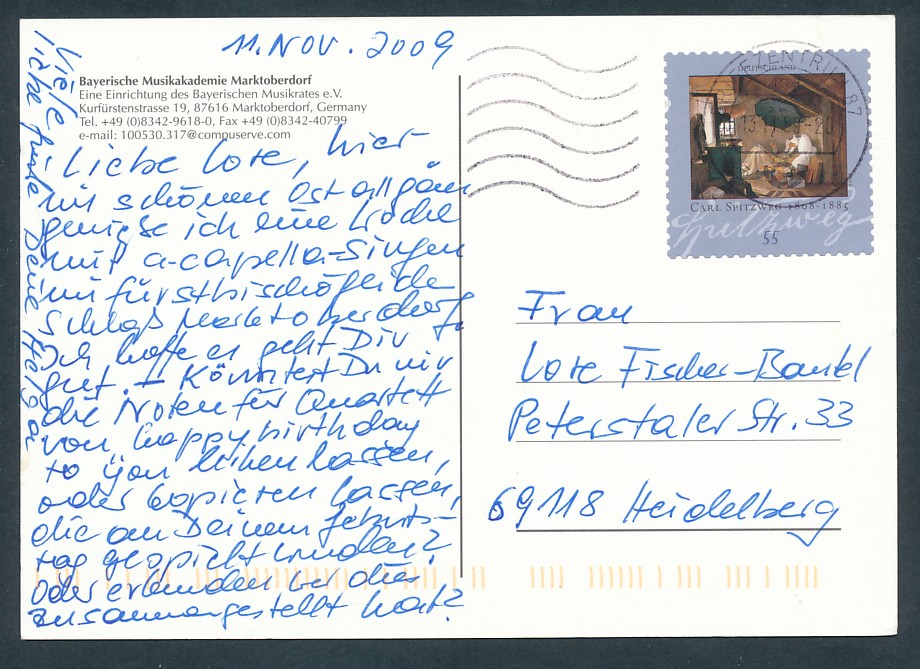 11. Nov. 2009
Bayerische Musikakademie Marktoberdorf
Eine Einrichtung des Bayerischen Musikrates e.V.
Kurfürstenstrasse 19, 87616 Marktoberdorf, Germany
Tel. +49 (0)8342-9618-0, Fax +49 (0)8342-40799
e-mail: 100530.317@compuserve.com
Liebe Lore, hier
im schönen Ostallgäu
genieße ich eine Woche
mit a-capella-Singen
im fürstbischöfliche
Schloß Marktoberdorf
Ich hoffe es geht Dir
gut. – Könntest Du mir
die Noten für Quartett
von happy birthday
to you leihen lassen,
oder kopieren lassen,
die an Deinem Geburts-
tag gespielt wurden?
Oder erkunden wer dies
zusammengestellt hat?
Viele
liebe Grüße Deine Helga
DEUTSCHLAND
CARL SPITZWEG 1808-1885
Spitzweg
55
BRIEFZENTRUM 87
Frau
Lore Fischer-Bantel
Peterstaler Str. 33
69118 Heidelberg